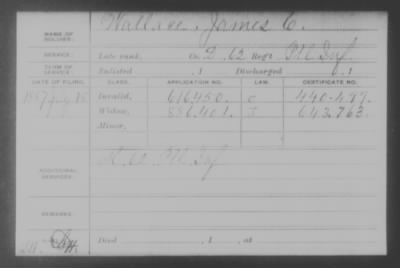 NAME OF SOLDIER: Wallace, James C.
SERVICE: Late rank, Co. D, 62 Reg't Ill Inf.
TERM OF SERVICE: Enlisted , 1 Discharged , 1
DATE OF FILING. CLASS. APPLICATION NO. LAW. CERTIFICATE NO.
1887 July Invalid, 616.450. 440.477.
Widow, 856.401. 643.763.
Minor,
ADDITIONAL SERVICES: Ill Inf
REMARKS:
Died , 1 , at